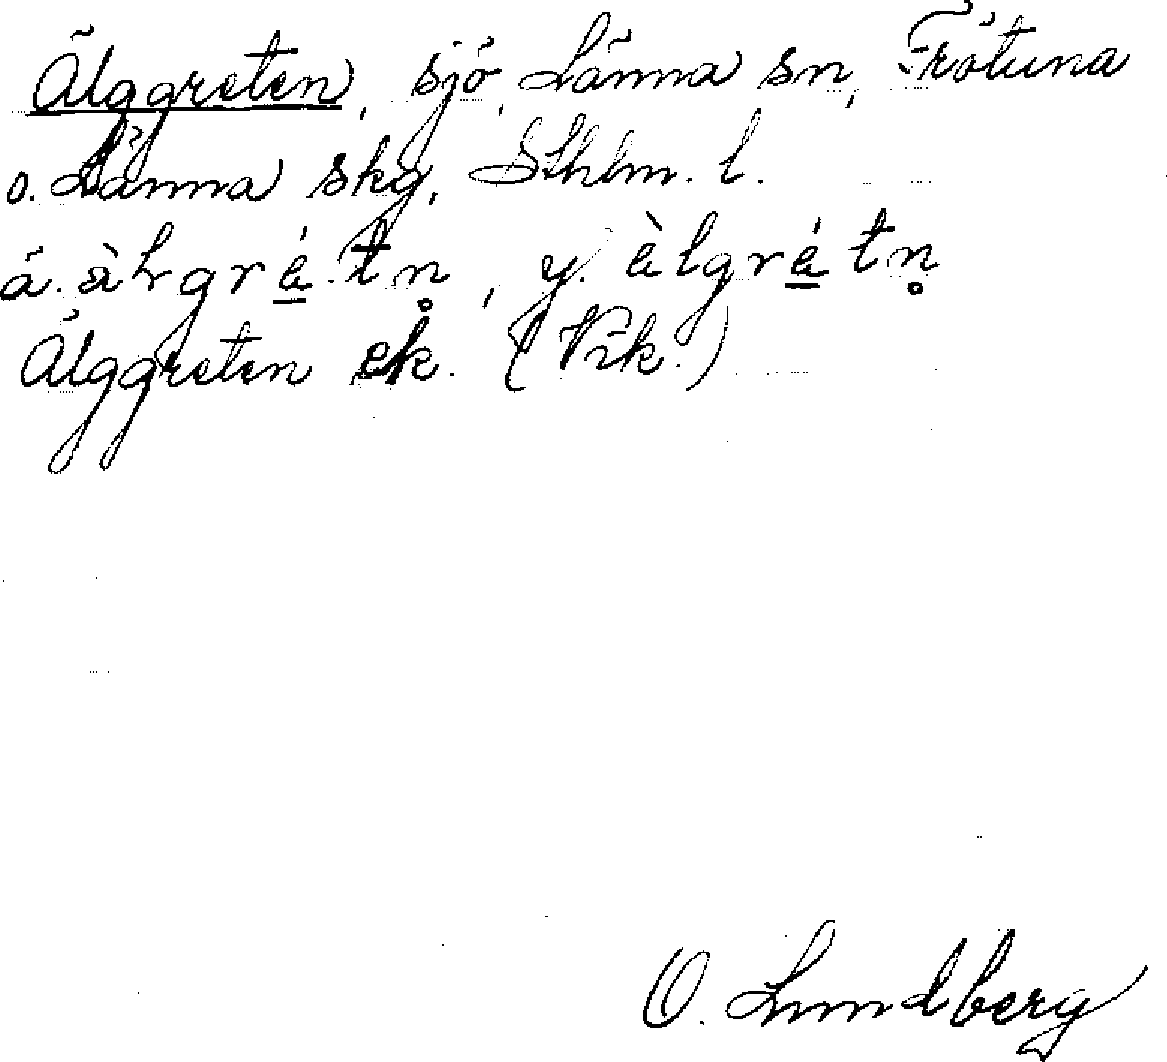 Älggreten, sjö, Länna sn, Frötuna
o. Länna skg, Sthlm. l.
ä. àlrgrá.tn̥, y. àlgrátn̥
Älggreten ek. (Vik.)
O. Lundberg